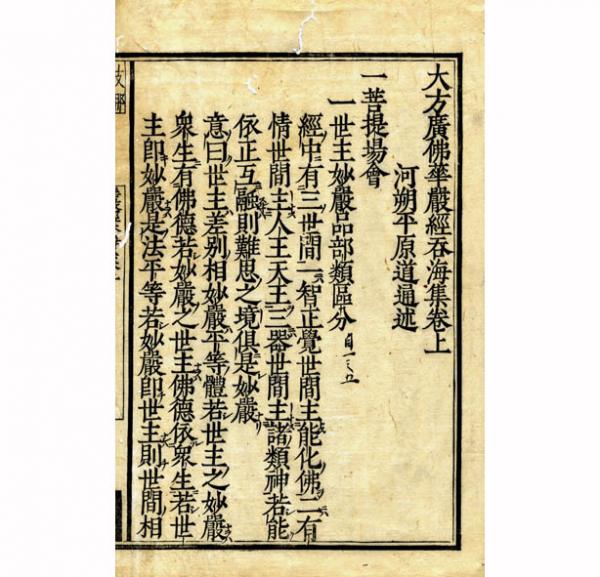 大方廣佛華嚴經吞海集卷上
河朔平原道通述
一菩提場會
一世主妙嚴品部類區分自一之五
經中有三世間一智正覺世間主能化佛二有
情世間主人王天王三器世間主諸類神若能
依正互融則難思之境俱是妙嚴
意曰世主差別相妙嚴平等體若世主之妙嚴
衆生有佛德若妙嚴之世主佛德依衆生若世
主即妙嚴是法平等若妙嚴即世主則世間相